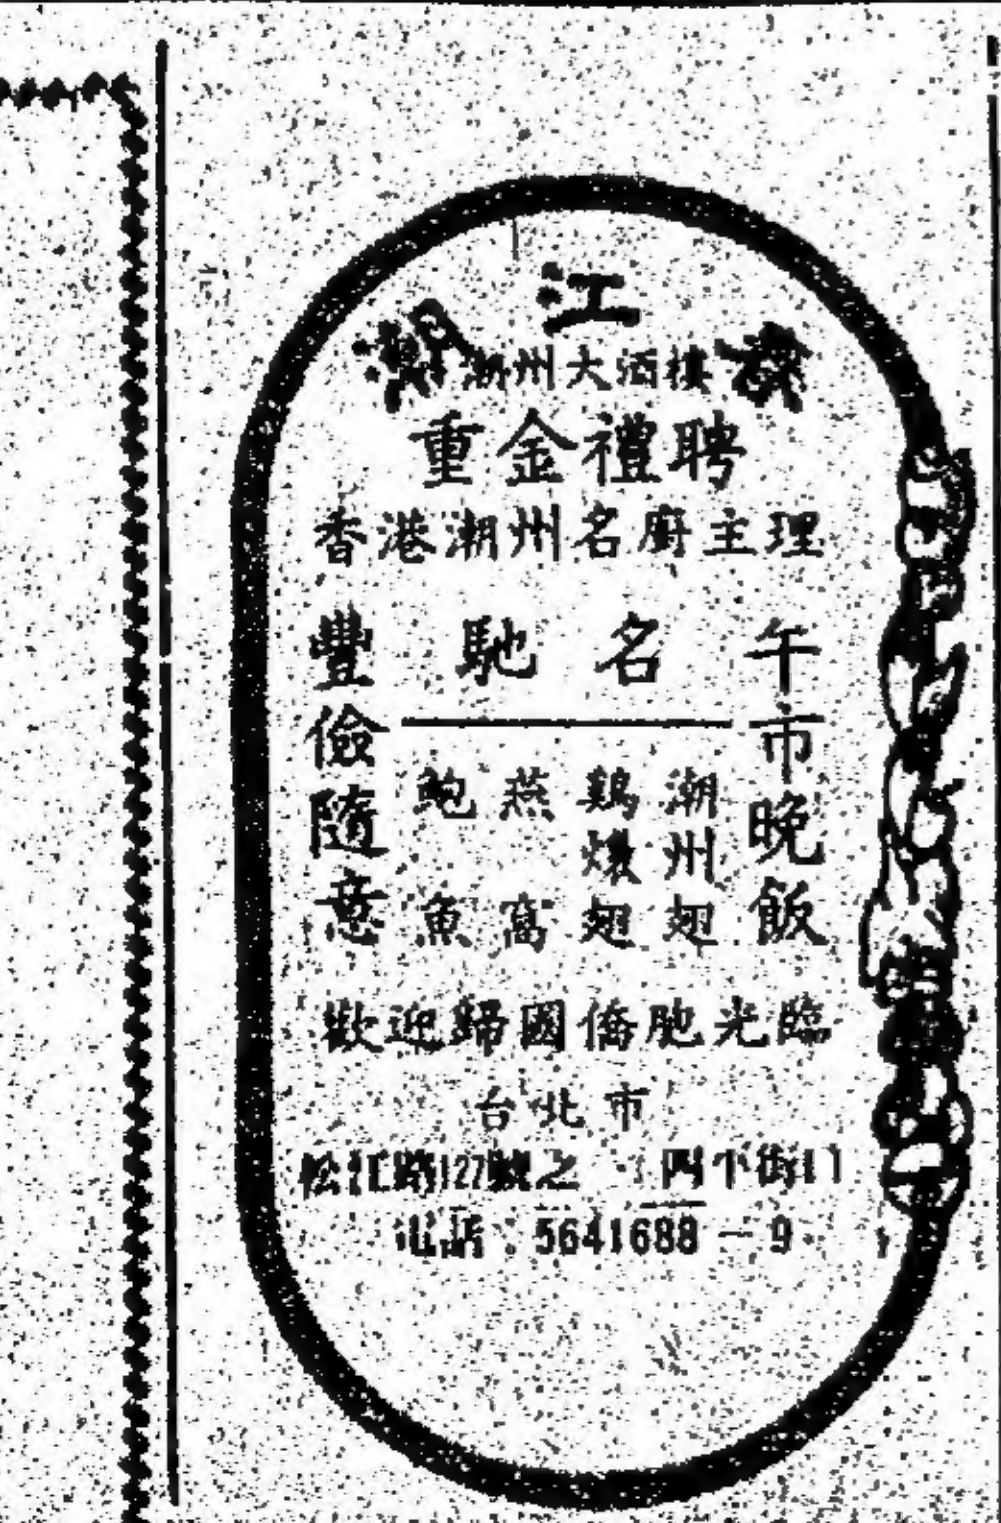 潮江春
潮州大酒樓
重金禮聘
香港潮州名廚主理
午市晚飯
名馳
潮州翅
鷄燉翅
燕窩
鮑魚
豐儉隨意
歡迎歸國僑胞光臨
台北市
松江路127號之
電話：5641688－9